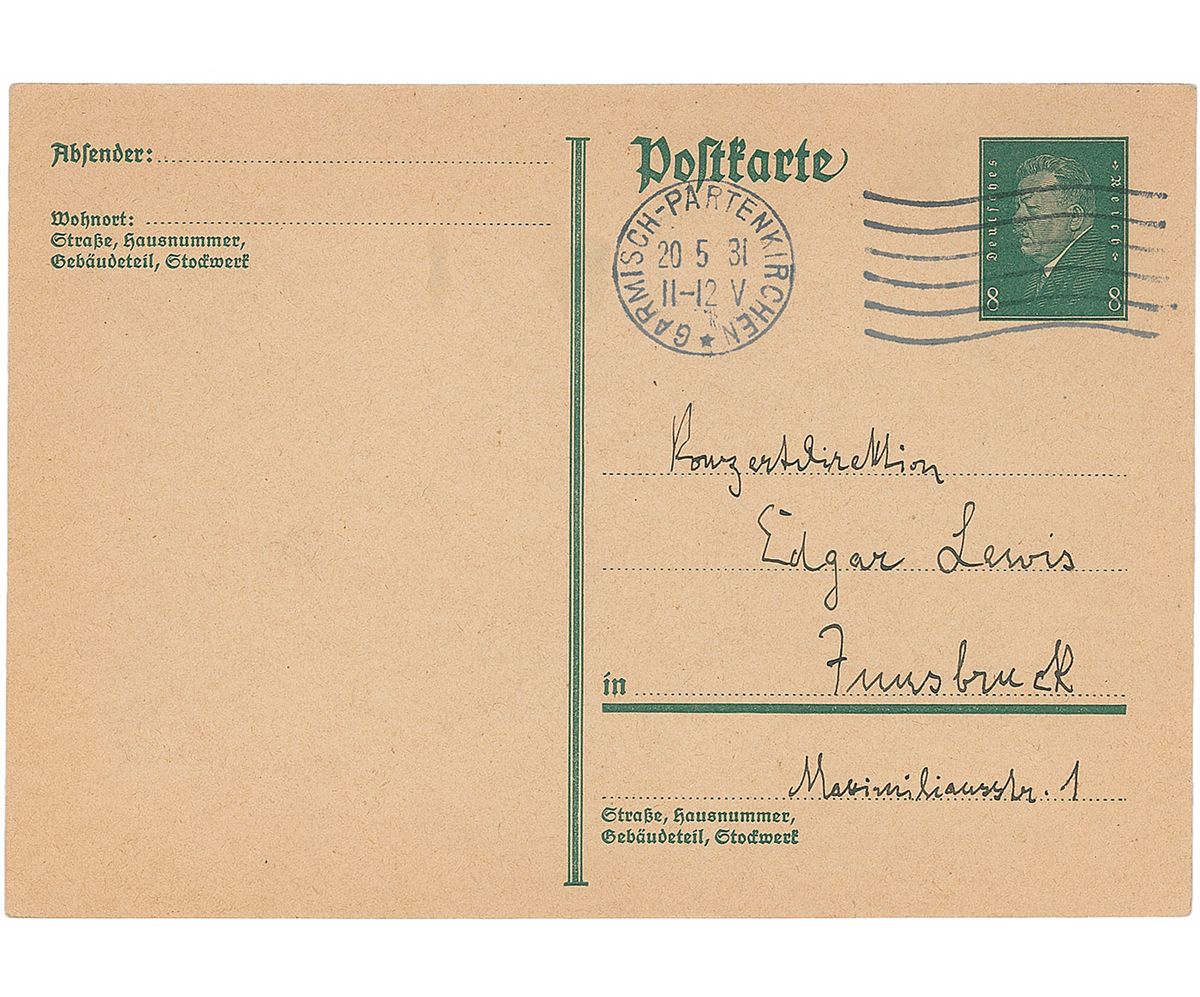 Absender:
Wohnort:
Straße, Hausnummer,
Gebäudeteil, Stockwerk
Postkarte
GARMISCH-PARTENKIRCHEN
20 5 31
11-12 V
Deutsches
Reich
8 8
Konzertdirektion
Edgar Lewis
in Innsbruck
Maximiliansstr. 1
Straße, Hausnummer,
Gebäudeteil, Stockwerk